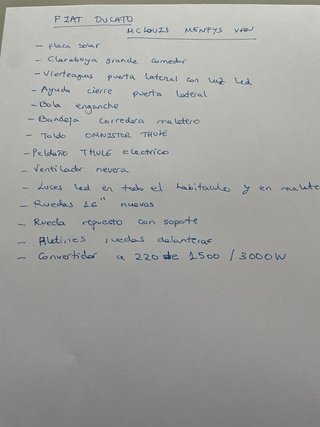 FIAT DUCATO
MCLOUIS MENPYS VAN
- placa solar
- Claraboya grande comedor
- Vierteaguas puerta lateral con luz led
- Ayuda cierre puerta lateral
- Bola enganche
- Bandeja corredera maletero
- Toldo OMNISTOR THULE
- Peldaño THULE electrico
- Ventilador nevera
- Luces led en todo el habitaculo y en malete
- Ruedas 16" nuevas
- Rueda repuesto con soporte
- Aletines ruedas delanteras
- Convertidor a 220 de 1500 / 3000W